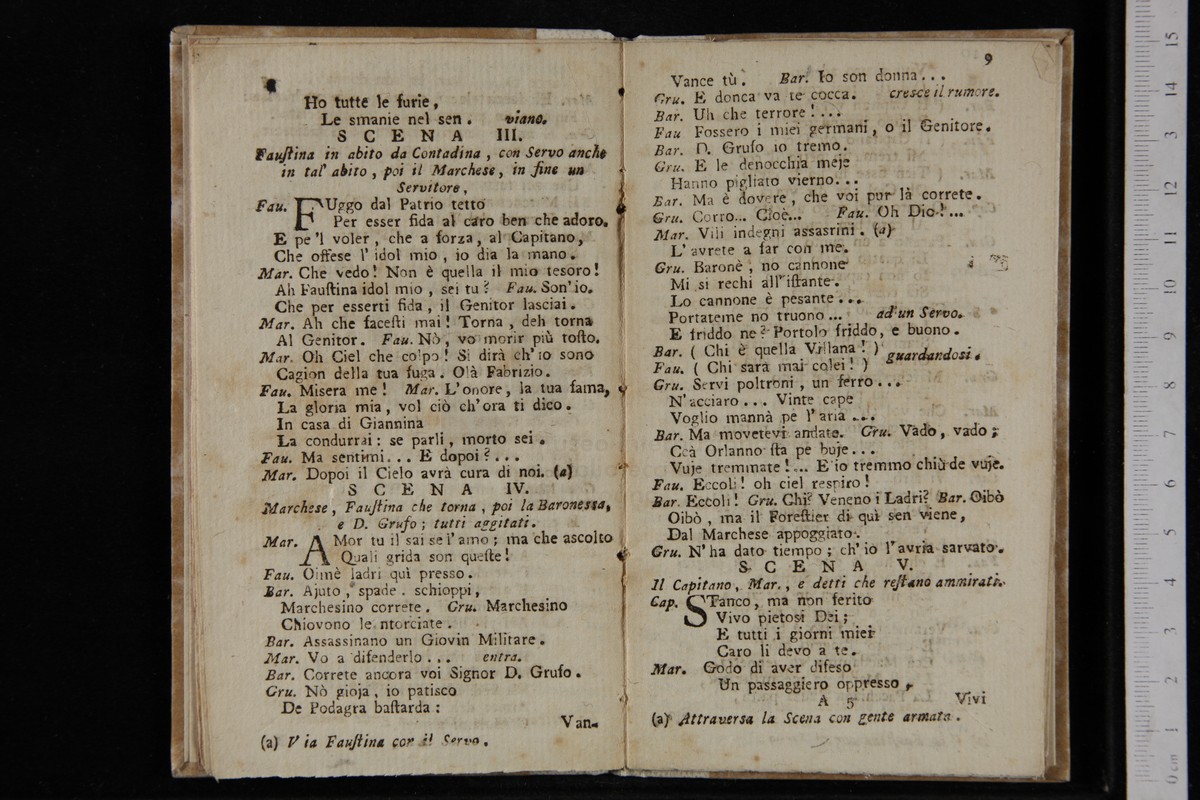 Ho tutte le furie,
Le smanie nel sen. viano.
SCENA III.
Faustina in abito da Contadina, con Servo anche
in tal' abito, poi il Marchese, in fine un
Servitore,
Fau. FUggo dal Patrio tetto
Per esser fida al caro ben che adoro.
E pe 'l voler, che a forza, al Capitano,
Che offese l' idol mio, io dia la mano.
Mar. Che vedo! Non è quella il mio tesoro!
Ah Faustina idol mio, sei tu? Fau. Son' io.
Che per esserti fida, il Genitor lasciai.
Mar. Ah che facesti mai! Torna, deh torna
Al Genitor. Fau. Nò, vo morir più tosto.
Mar. Oh Ciel che colpo! Si dirà ch' io sono
Cagion della tua fuga. Olà Fabrizio.
Fau. Misera me! Mar. L'onore, la tua fama,
La gloria mia, vol ciò ch'ora ti dico.
In casa di Giannina
La condurrai: se parli, morto sei.
Fau. Ma sentimi... E dopoi?...
Mar. Dopoi il Cielo avrà cura di noi. (a)
SCENA IV.
Marchese, Faustina che torna, poi la Baronessa,
e D. Grufo; tutti aggitati.
Mar. AMor tu il sai se l'amo; ma che ascolto
Quali grida son queste!
Fau. Oimè ladri quì presso.
Bar. Ajuto, spade. schioppi,
Marchesino correte. Gru. Marchesino
Chiovono le ntorciate.
Bar. Assassinano un Giovin Militare.
Mar. Vo a difenderlo... entra.
Bar. Correte ancora voi Signor D. Grufo.
Gru. Nò gioja, io patisco
De Podagra bastarda:
Van-
(a) Via Faustina con il Servo.
9
Vance tù. Bar. Io son donna...
Gru. E donca va te cocca. cresce il rumore.
Bar. Uh che terrore!...
Fau Fossero i miei germani, o il Genitore.
Bar. D. Grufo io tremo.
Gru. E le denocchia meje
Hanno pigliato vierno...
Bar. Ma è dovere, che voi pur là correte.
Gru. Corro... Cioè... Fau. Oh Dio!...
Mar. Vili indegni assasrini. (a)
L' avrete a far con me.
Gru. Baronè, no cannone
Mi si rechi all' istante.
Lo cannone è pesante...
Portateme no truono... ad'un Servo.
E friddo ne? Portolo friddo, e buono.
Bar. ( Chi è quella Villana! ) guardandosi.
Fau. ( Chi sarà mai colei! )
Gru. Servi poltroni, un ferro...
N'acciaro... Vinte cape
Voglio mannà pe l' aria...
Bar. Ma movetevi andate. Gru. Vado, vado;
Ccà Orlanno sta pe buje...
Vuje tremmate!... E io tremmo chiù de vuje.
Fau. Eccoli! oh ciel respiro!
Bar. Eccoli! Gru. Chi? Veneno i Ladri? Bar. Oibò
Oibò, ma il Forestier di quì sen viene,
Dal Marchese appoggiato.
Gru. N'ha dato tiempo; ch' io l'avria sarvato.
SCENA V.
Il Capitano, Mar., e detti che restano ammirati.
Cap. STanco, ma non ferito
Vivo pietosi Dei;
E tutti i giorni miei
Caro li devo a te.
Mar. Godo di aver difeso
Un passaggiero oppresso,
A 5 Vivi
(a) Attraversa la Scena con gente armata.